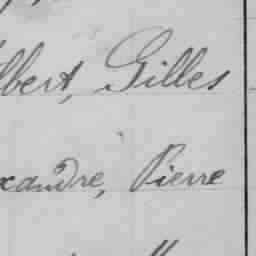 lbert, Gilles
xandre, Pierre